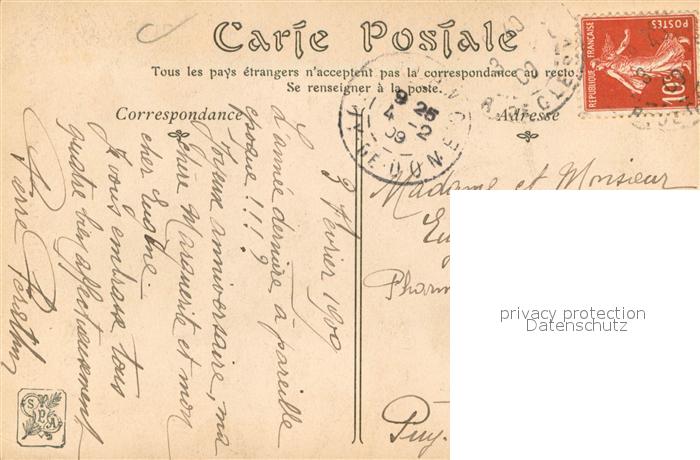 Carte Postale
Tous les pays étrangers n'acceptent pas la correspondance au recto.
Se renseigner à la poste.
Correspondance
Adresse
REPUBLIQUE FRANÇAISE
POSTES
10c
9 25
4 - 2
09
3 février 1909
l'année dernière à pareille
époque !!!?
Joyeux anniversaire, ma
chère Marguerite et mon
cher Eugène
Je vous embrasse tous
quatre bien affectueusement
Pierre
Madame et Monsieur
Eu
Pharm
Puy
privacy protection
Datenschutz